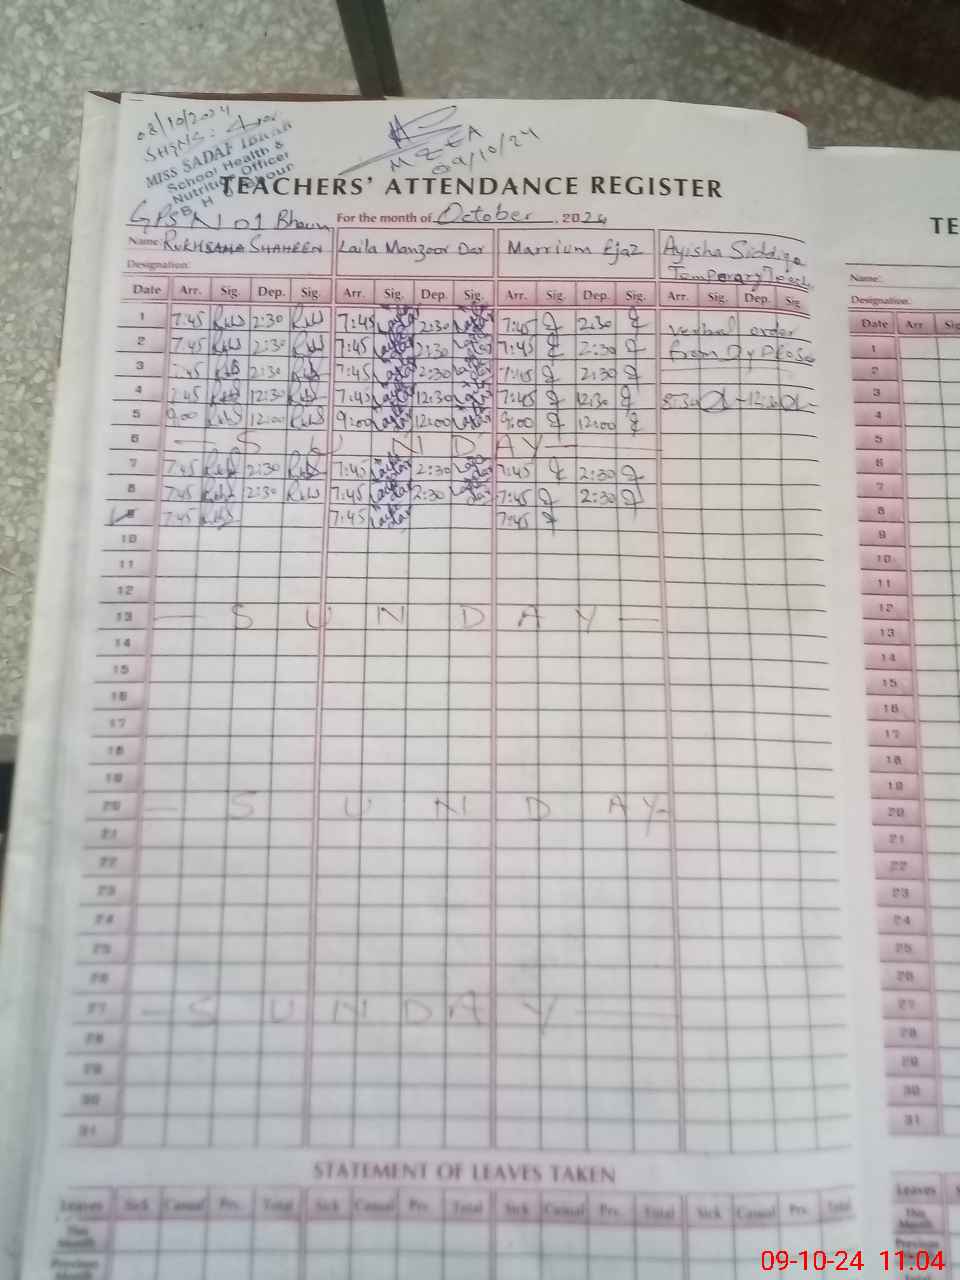 08/10/2024
SH&NS:
MISS SADAF
School Health &
Nutrition Officer
B H U
MEEA
09/10/24
TEACHERS' ATTENDANCE REGISTER
TE
GPS N 01 Bhaun For the month of October, 2024
Name: RUKHSANA SHAHEEN Laila Manzoor Dar Marrium Ejaz Ayisha Siddiqa
Designation: Temporary
Name:
Designation:
Date Arr. Sig. Dep. Sig. Arr. Sig. Dep. Sig. Arr. Sig. Dep. Sig. Arr. Sig. Dep. Sig.
Date Arr
1 7:45 2:30 7:45 2:30 7:45 2:30 verbal order
2 7:45 2:30 7:45 2:30 7:45 2:30 from Dy
3 7:45 2:30 7:45 2:30 7:45 2:30
4 7:45 12:30 7:45 12:30 7:45 12:30 8:30 12:30
5 9:00 12:00 9:00 12:00 9:00 12:00
6 — S U N D A Y —
7 7:45 2:30 7:45 2:30 7:45 2:30
8 7:45 2:30 7:45 2:30 7:45 2:30
9 7:45 7:45 7:45
10
11
12
13 — S U N D A Y —
14
15
16
17
18
19
20 — S U N D A Y —
21
22
23
24
25
26
27 — S U N D A Y —
28
29
30
31
1
2
3
4
5
6
7
8
9
10
11
12
13
14
15
16
17
18
19
20
21
22
23
24
25
26
27
28
29
30
31
STATEMENT OF LEAVES TAKEN
Leaves Sick Casual Prv. Total Sick Casual Prv. Total Sick Casual Prv. Total Sick Casual Prv. Total
This
Month
Previous
Month
Leaves
This
Month
Previous
09-10-24 11:04